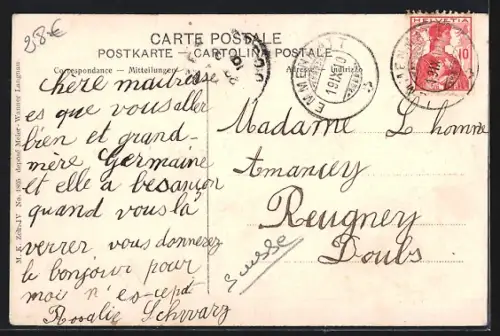 28-€
CARTE POSTALE
POSTKARTE - CARTOLINA POSTALE
Correspondance - Mitteilungen
HELVETIA
10
EMMENMATT
19.IX.10
chere maitresse
es que vous aller
bien et grand-
mere Germaine
et elle a besançon
quand vous la
verrer vous donnerez
le bonjour pour
moi n'es-cept
Rosalie Schwarz
Madame Lhomme
Amancey
Reugney
Doubs
Suisse